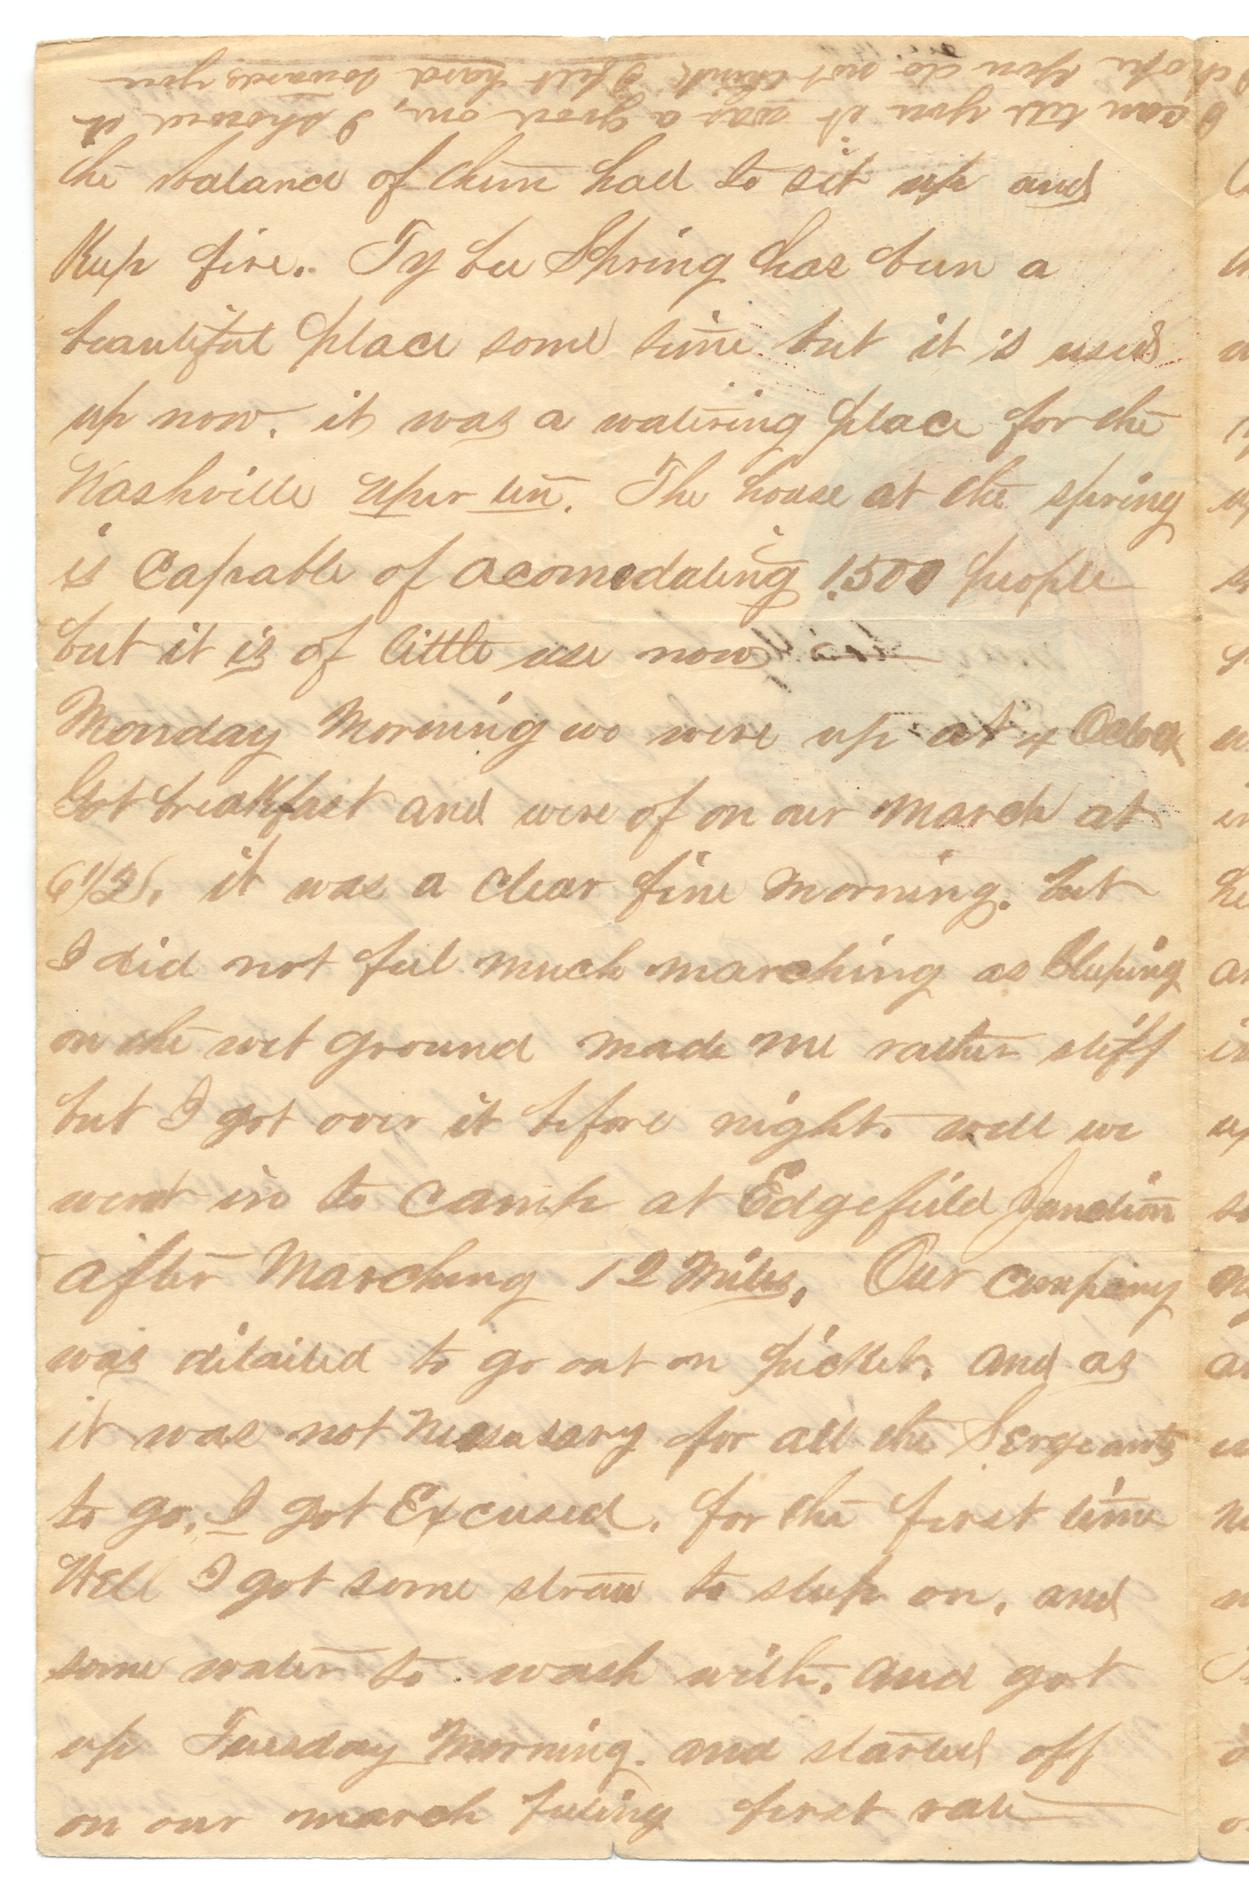 I can tell you it was a good one, I showed it
I hope you do not think I felt hard towards you
the balance of them had to sit up and
Keep fire. Ty bee Spring has been a
beautiful place some time but it is used
up now. it was a watering place for the
Nashville uper ten. The house at the spring
is capable of acomodating 1500 people
but it is of little use now
Monday Morning we were up at 4 Oclock
Got breakfast and were of on our march at
6 1/2. it was a clear fine morning. but
I did not feel much marching as Sleeping
on the wet ground made me rather stiff
but I got over it before night. well we
went in to camp at Edgefield Junction
after Marching 12 Miles. Our company
was detailed to go out on picket. and as
it was not Nessessary for all the Sergeants
to go. I got Excused. for the first time
Well I got some straw to sleep on, and
some water to wash with. and got
up Tuesday Morning. and started off
on our march feeling first rate